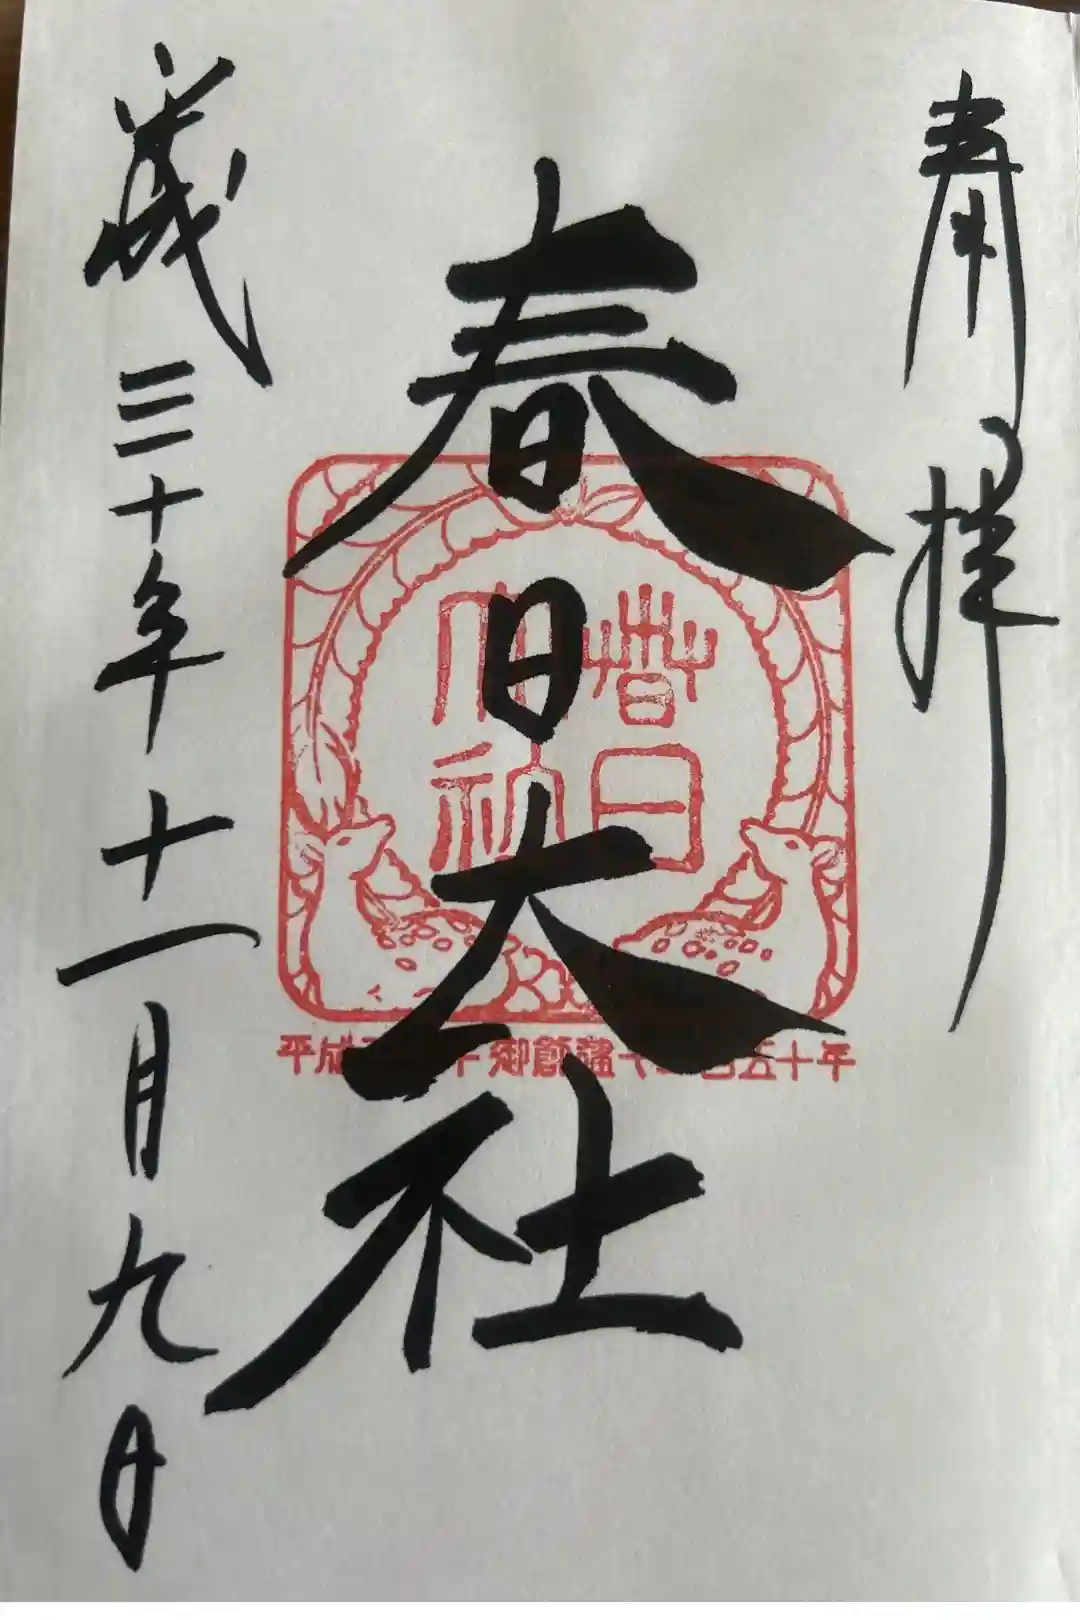 奉拝
春日大社
平成三十年十一月九日
春日
大社
平成三十年 御創建千二百五十年